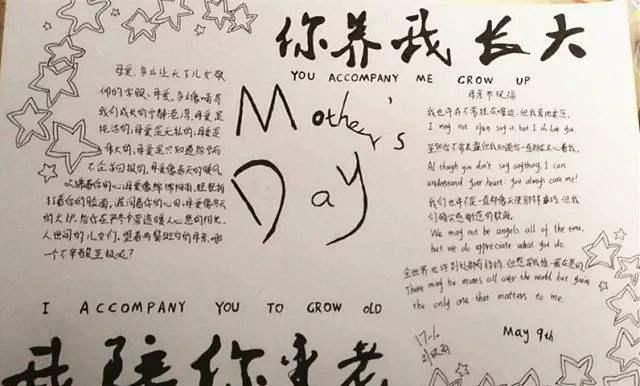 你养我长大
YOU ACCOMPANY ME GROW UP
母爱,多么让天下儿女敬
仰的字眼,母爱,多么像哺育
我们成长的宁静港湾,母爱是
纯洁的,母爱是无私的,母爱是
伟大的,母爱是只知道给与
不企求回报的,母爱像春天的暖风
吹拂着你的心;母爱像绵绵细雨,轻轻拍
打着你的脸面,滋润着你的心田;母爱像冬天
的火炉,给你在严冬中营造暖人心意的阳光,
人世间的儿女们,望着两鬓斑白的母亲,哪
一个不争相报效呢?
Mother's
Day
母亲节祝福
我也许并不常挂在嘴边,但我真地爱您。
I may not often say it, but I do love you.
虽然你不常表露但我知道你一直都在关心着我。
Although you don't say anything, I can
understand your heart: you always care me!
我们也许不是一直都像天使那样乖巧,但我
们确实感谢您的教诲。
We may not be angels all of the time,
but we do appreciate what you do.
全世界也许到处都有妈妈,但您是我唯一最在意的
There may be moms all over the world but you're
the only one that matters to me.
17-6
May 9th
I ACCOMPANY YOU TO GROW OLD
我陪你变老